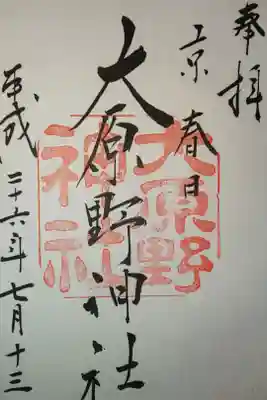 奉拝
京 春日
大原野神社
大原野
神社
平成二十六年七月十三